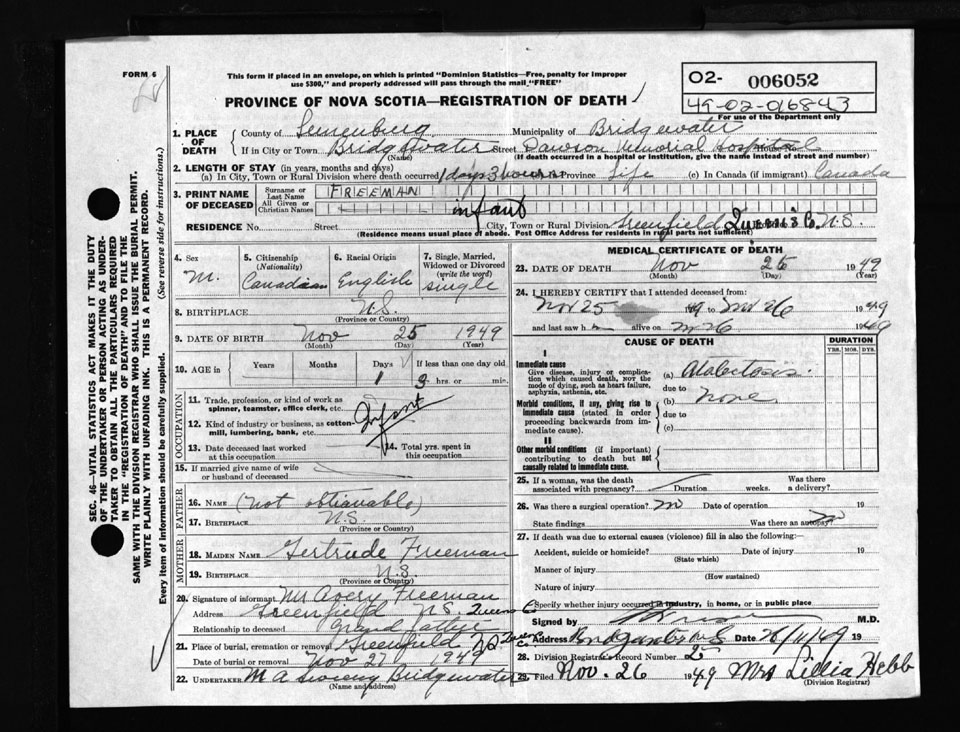 FORM 6
This form if placed in an envelope, on which is printed "Dominion Statistics—Free, penalty for improper
use $300," and properly addressed will pass through the mail "FREE"
PROVINCE OF NOVA SCOTIA—REGISTRATION OF DEATH
02- 006052
49-02-016843
For use of the Department only
1. PLACE OF DEATH
County of Lunenburg Municipality of Bridgewater
If in City or Town Bridgewater Street Dawson Memorial Hospital
(Name) (If death occurred in a hospital or institution, give the name instead of street and number)
2. LENGTH OF STAY (in years, months and days)
(a) In City, Town or Rural Division where death occurred 1 days 3 hours Province Life (c) In Canada (if immigrant) Canada
3. PRINT NAME OF DECEASED
Surname or Last Name FREEMAN
All Given or Christian Names infant
RESIDENCE No. Street City, Town or Rural Division Greenfield Queens Co. N.S
(Residence means usual place of abode. Post Office Address for residents in rural parts not sufficient)
SEC. 46—VITAL STATISTICS ACT MAKES IT THE DUTY
OF THE UNDERTAKER OR PERSON ACTING AS UNDER-
TAKER TO OBTAIN ALL THE PARTICULARS REQUIRED
IN THE "REGISTRATION OF DEATH" AND TO FILE THE
SAME WITH THE DIVISION REGISTRAR WHO SHALL ISSUE THE BURIAL PERMIT.
WRITE PLAINLY WITH UNFADING INK. THIS IS A PERMANENT RECORD.
Every item of information should be carefully supplied. (See reverse side for instructions.)
4. Sex M.
5. Citizenship (Nationality) Canadian
6. Racial Origin English
7. Single, Married, Widowed or Divorced (write the word) single
8. BIRTHPLACE N.S.
(Province or Country)
9. DATE OF BIRTH Nov 25 1949
(Month) (Day) (Year)
10. AGE in Years Months Days 1 If less than one day old 3 hrs. or min.
OCCUPATION
11. Trade, profession, or kind of work as
spinner, teamster, office clerk, etc. Infant
12. Kind of industry or business, as cotton-
mill, lumbering, bank, etc.
13. Date deceased last worked
at this occupation
14. Total yrs. spent in
this occupation
15. If married give name of wife
or husband of deceased
FATHER
16. NAME (not obtianable)
17. BIRTHPLACE N.S.
(Province or Country)
MOTHER
18. MAIDEN NAME Gertrude Freeman
19. BIRTHPLACE N.S.
(Province or Country)
20. Signature of informant Mr Avery Freeman
Address Greenfield N.S. Queens Co
Relationship to deceased Grand father
21. Place of burial, cremation or removal Greenfield Queens Co NS
Date of burial or removal Nov 27 1949
22. UNDERTAKER M A Bridgewater
(Name and address)
MEDICAL CERTIFICATE OF DEATH
23. DATE OF DEATH Nov 26 1949
(Month) (Day)
24. I HEREBY CERTIFY that I attended deceased from:
Nov 25 49 to Nov 26 1949
and last saw h alive on 26 1949
CAUSE OF DEATH
DURATION
YRS. MOS. DYS.
I
Immediate cause
Give disease, injury or compli-
cation which caused death, NOT the
mode of dying, such as heart failure,
asphyxia, asthenia, etc.
(a) Atalectosis.
due to
Morbid conditions, if any, giving rise to
immediate cause (stated in order
proceeding backwards from im-
mediate cause).
(b) None
due to
(c)
II
Other morbid conditions (if important)
contributing to death but not
causally related to immediate cause.
25. If a woman, was the death
associated with pregnancy? Duration weeks. Was there
a delivery?
26. Was there a surgical operation? no Date of operation 19
State findings Was there an autopsy? no
27. If death was due to external causes (violence) fill in also the following:—
Accident, suicide or homicide? Date of injury 19
(State which)
Manner of injury
(How sustained)
Nature of injury
Specify whether injury occurred in industry, in home, or in public place
Signed by M.D.
Address Bridgewater NS Date 26/11/49 19
28. Division Registrar's Record Number 25
29. Filed Nov. 26 1949 Mrs Lillia Hebb
(Division Registrar)